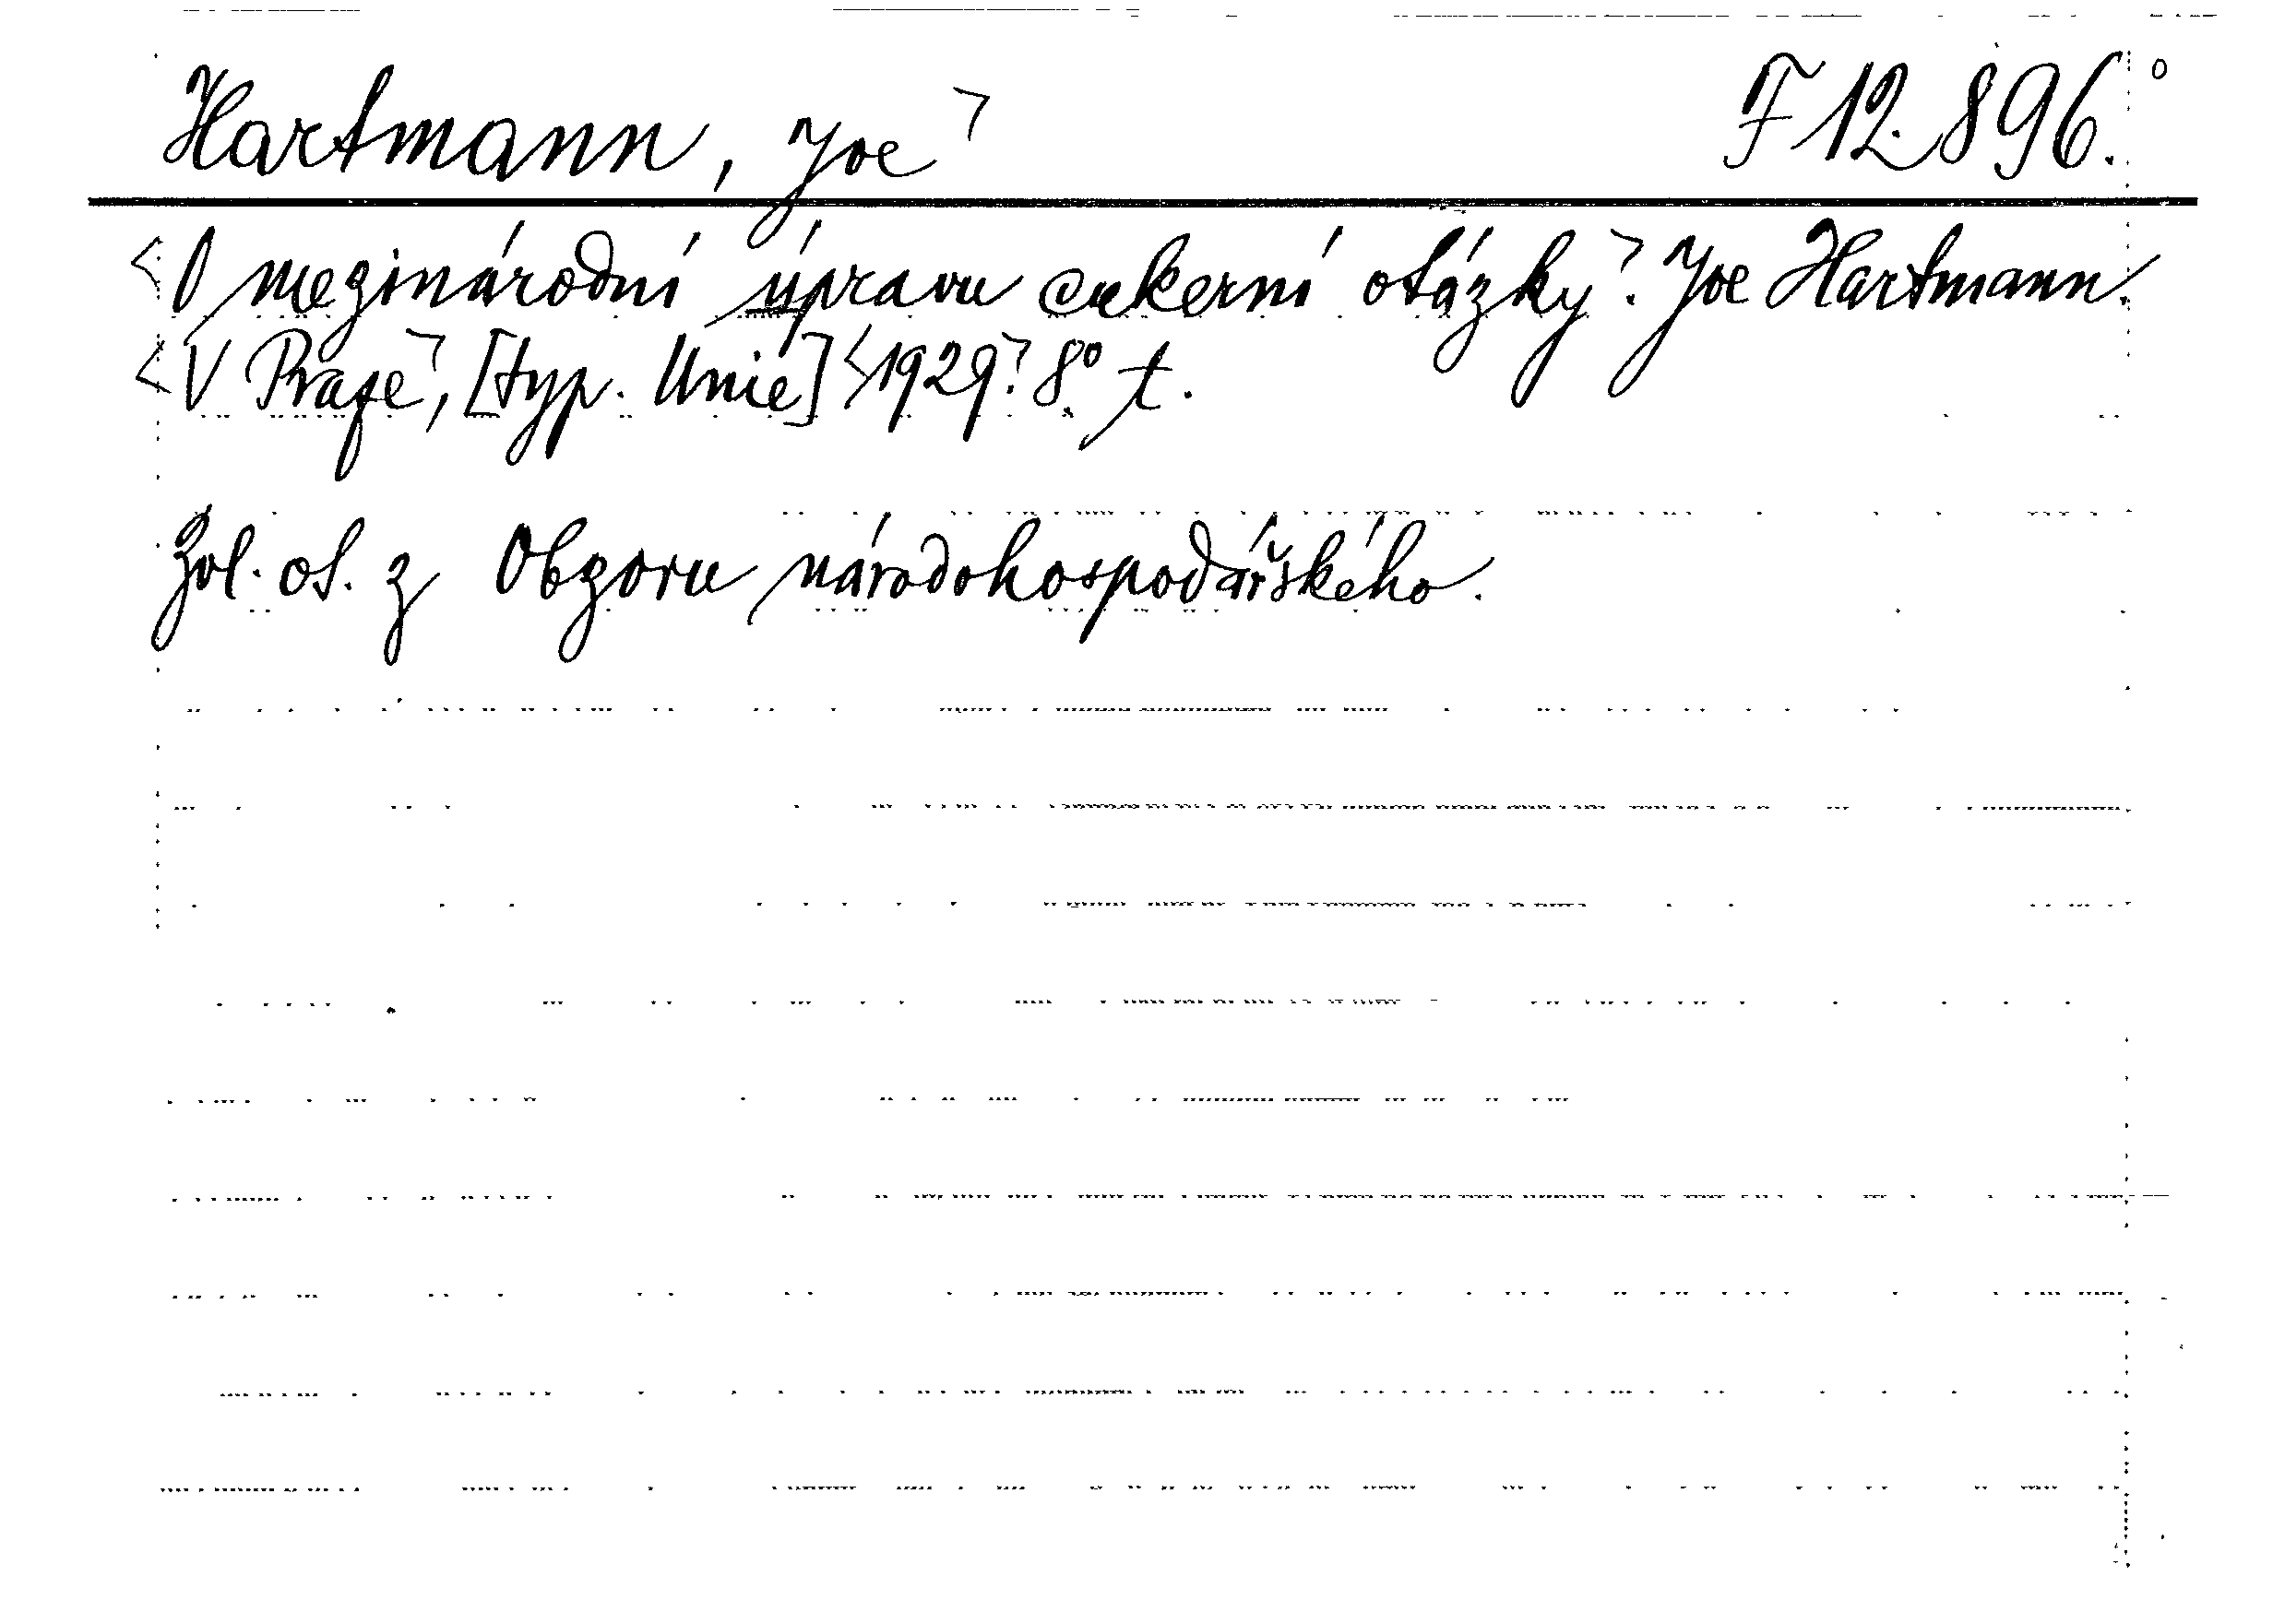 Hartmann, Joe ⌝ F 12.896.°
<O mezinárodní úpravu cukerní otázky⌝. Joe Hartmann.
<V Praze⌝, [typ. Unie] <1929⌝. 8° t.
Zvl. ot. z Obzoru národohospodářského.